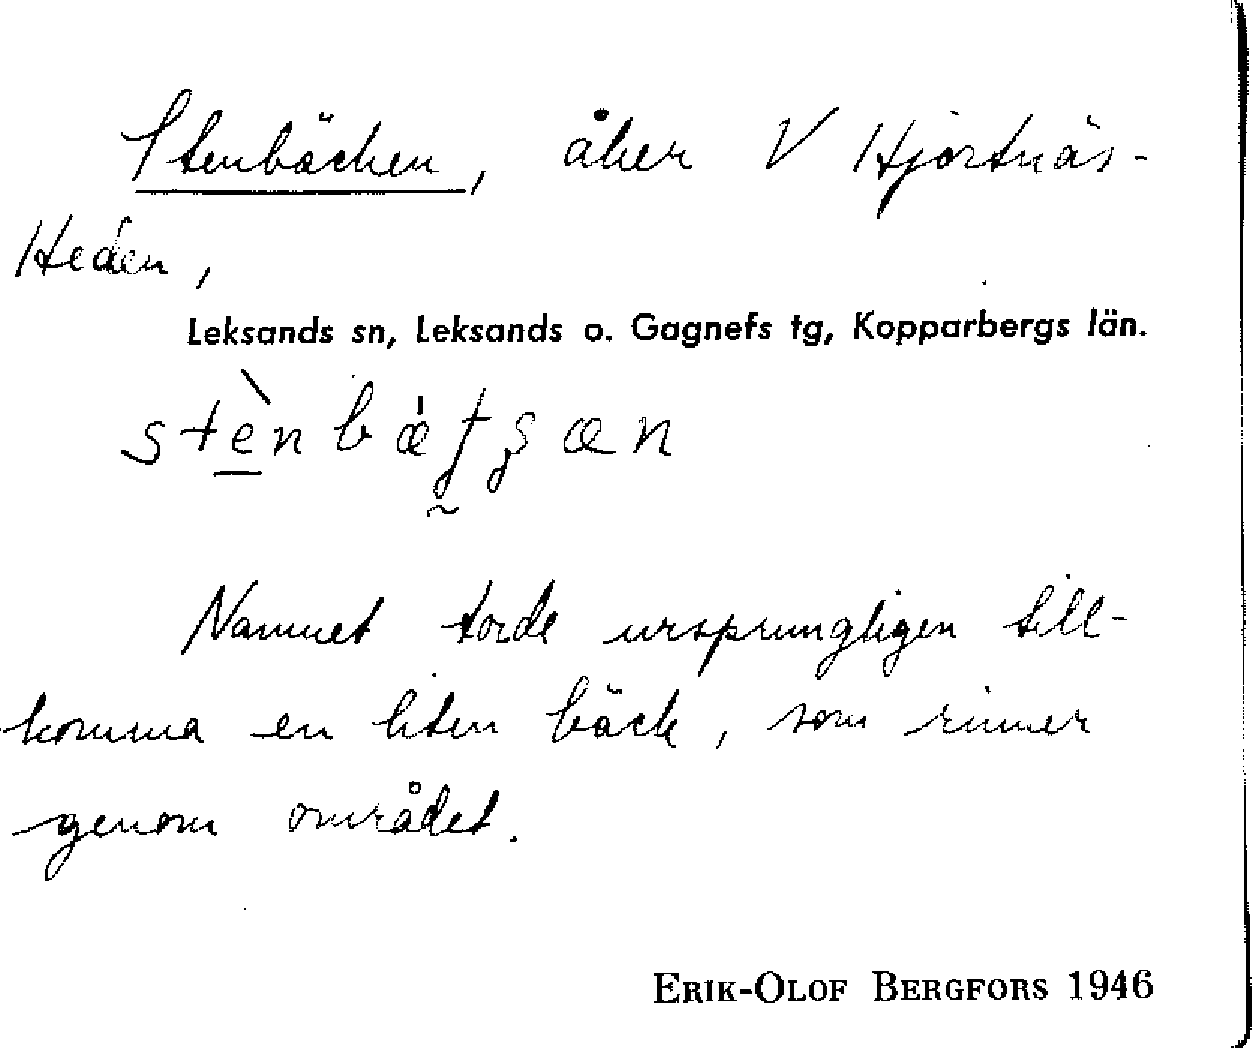 Stenbäcken, åker V Hjortnäs-
Heden,
Leksands sn, Leksands o. Gagnefs tg, Kopparbergs län.
Namnet torde ursprungligen till-
komma en liten bäck, som rinner
genom området.
ERIK-OLOF BERGFORS 1946